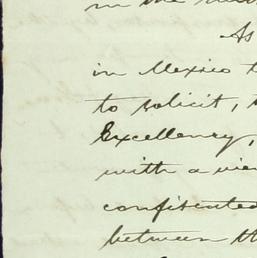 in the
As
in Mexico t
to solicit,
Excellency,
with a vie
confiscated
between th